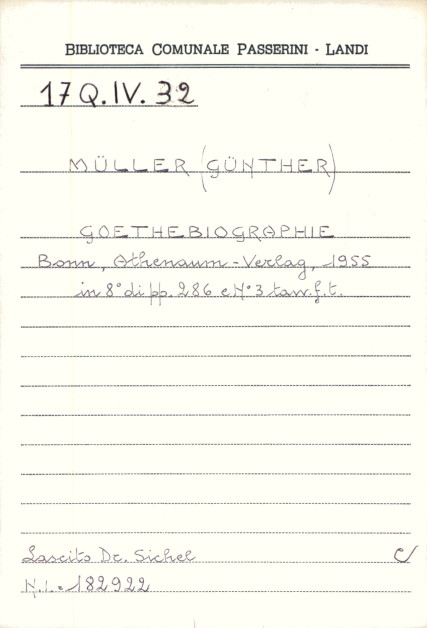 BIBLIOTECA COMUNALE PASSERINI - LANDI
17 Q.IV. 32
MÜLLER (GÜNTHER)
GOETHEBIOGRAPHIE
Bonn, Athenaum-Verlag, 1955
in 8° di pp. 286 e N° 3 tav. f. t.
Lascito Dr. Sichel C/
N.I. = 182922